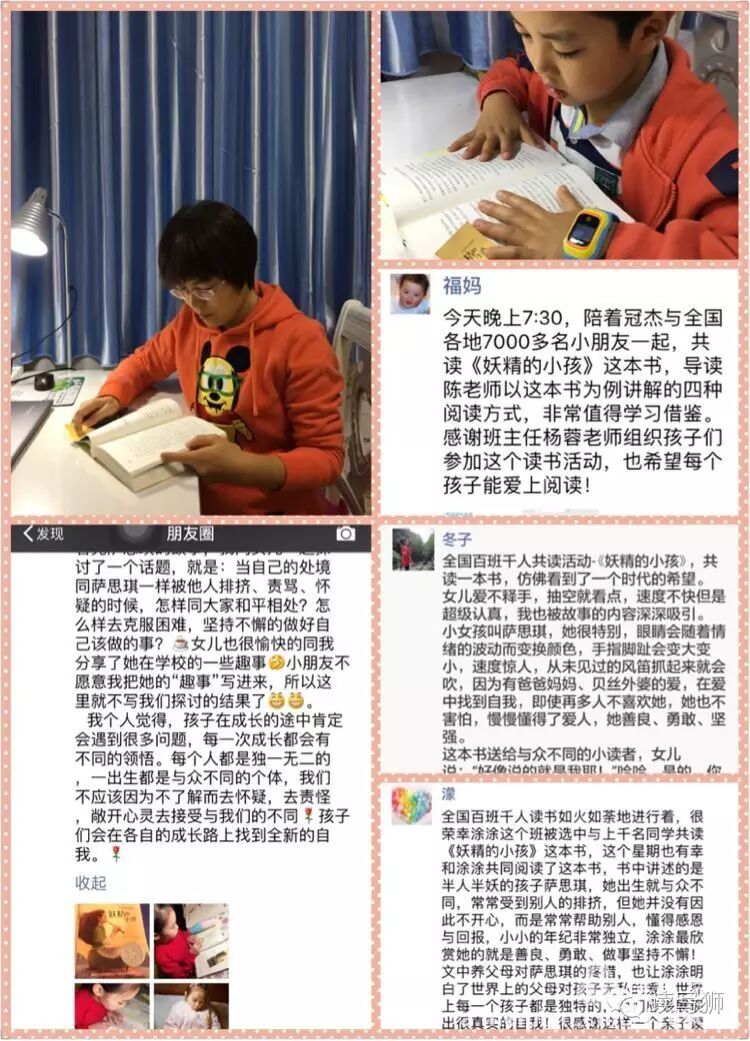 福妈
今天晚上7:30，陪着冠杰与全国
各地7000多名小朋友一起，共
读《妖精的小孩》这本书，导读
陈老师以这本书为例讲解的四种
阅读方式，非常值得学习借鉴。
感谢班主任杨蓉老师组织孩子们
参加这个读书活动，也希望每个
孩子能爱上阅读！
发现
朋友圈
讨了一个话题，就是：当自己的处境
同萨思琪一样被他人排挤、责骂、怀
疑的时候，怎样同大家和平相处？怎
么样去克服困难，坚持不懈的做好自
己该做的事？☕女儿也很愉快的同我
分享了她在学校的一些趣事🤣小朋友不
愿意我把她的“趣事”写进来，所以这
里就不写我们探讨的结果了😁😁。
我个人觉得，孩子在成长的途中肯定
会遇到很多问题，每一次成长都会有
不同的领悟。每个人都是独一无二的
，一出生都是与众不同的个体，我们
不应该因为不了解而去怀疑，去责怪
，敞开心灵去接受与我们的不同🌹孩子
们会在各自的成长路上找到全新的自
我。🌹
收起
妖精的
冬子
全国百班千人共读活动-《妖精的小孩》，共
读一本书，仿佛看到了一个时代的希望。
女儿爱不释手，抽空就看点，速度不快但是
超级认真，我也被故事的内容深深吸引。
小女孩叫萨思琪，她很特别，眼睛会随着情
绪的波动而变换颜色，手指脚趾会变大变
小，速度惊人，从未见过的风笛抓起来就会
吹，因为有爸爸妈妈、贝丝外婆的爱，在爱
中找到自我，即使再多人不喜欢她，她也不
害怕，慢慢懂得了爱人，她善良、勇敢、坚
强。
这本书送给与众不同的小读者，女儿
说：“好像说的就是我耶！”哈哈，是的，你
濛
全国百班千人读书如火如荼地进行着，很
荣幸涂涂这个班被选中与上千名同学共读
《妖精的小孩》这本书，这个星期也有幸
和涂涂共同阅读了这本书，书中讲述的是
半人半妖的孩子萨思琪，她出生就与众不
同，常常受到别人的排挤，但她并没有因
此不开心，而是常常帮助别人，懂得感恩
与回报，小小的年纪非常独立，涂涂最欣
赏她的就是善良、勇敢、做事坚持不懈！
文中养父母对萨思琪的疼惜，也让涂涂明
白了世界上的父母对孩子无私的爱！世界
上每一个孩子都是独特的，
出很真实的自我！很感谢这样一个亲子读